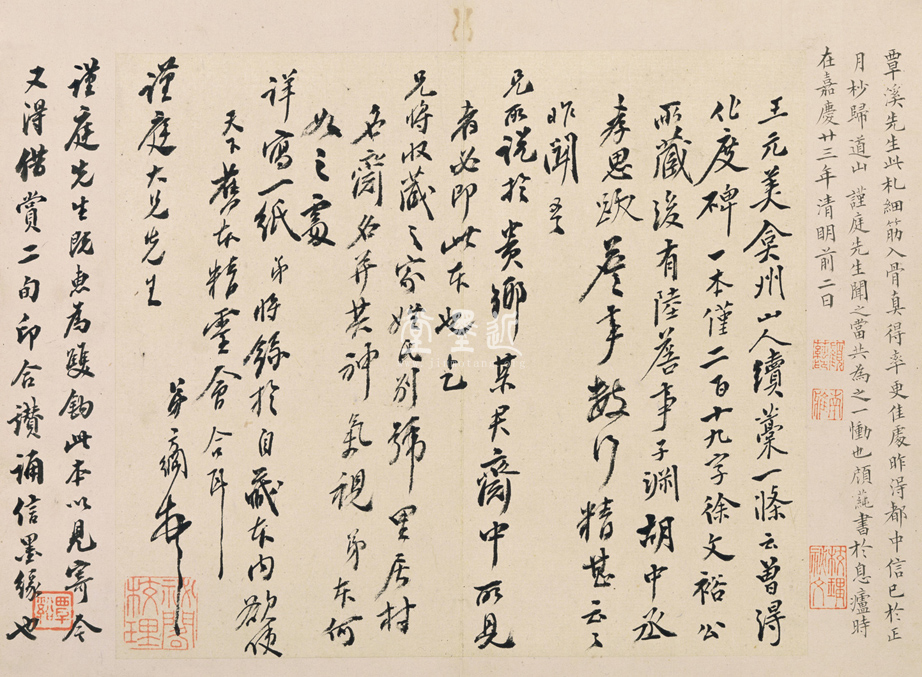 覃溪先生此札細筋入骨真得率更佳處昨得都中信已於正
月杪歸道山 謹庭先生聞之當共為之一慟也顧蒓書於息廬時
在嘉慶廿三年清明前二日
王元美弇州山人續藁一條云曾得
化度碑一本僅二百十九字徐文裕公
所藏後有陸詹事子淵胡中丞
孝思歐詹事數行精甚云々
昨聞吾
兄所說於貴鄉某君齋中所見
者必即此本也乞
兄將收藏之家姓氏別號里居村
名齋名并其神氣視弟本何
如之處
詳寫一紙弟將錄於自藏本內欲使
天下舊本精靈會合耳
謹庭大兄先生 弟方綱
秘閣校理
謹庭先生既惠為雙鈎此本以見寄今
又得借賞二旬印合讚誦信墨緣也
覃谿
近墨堂